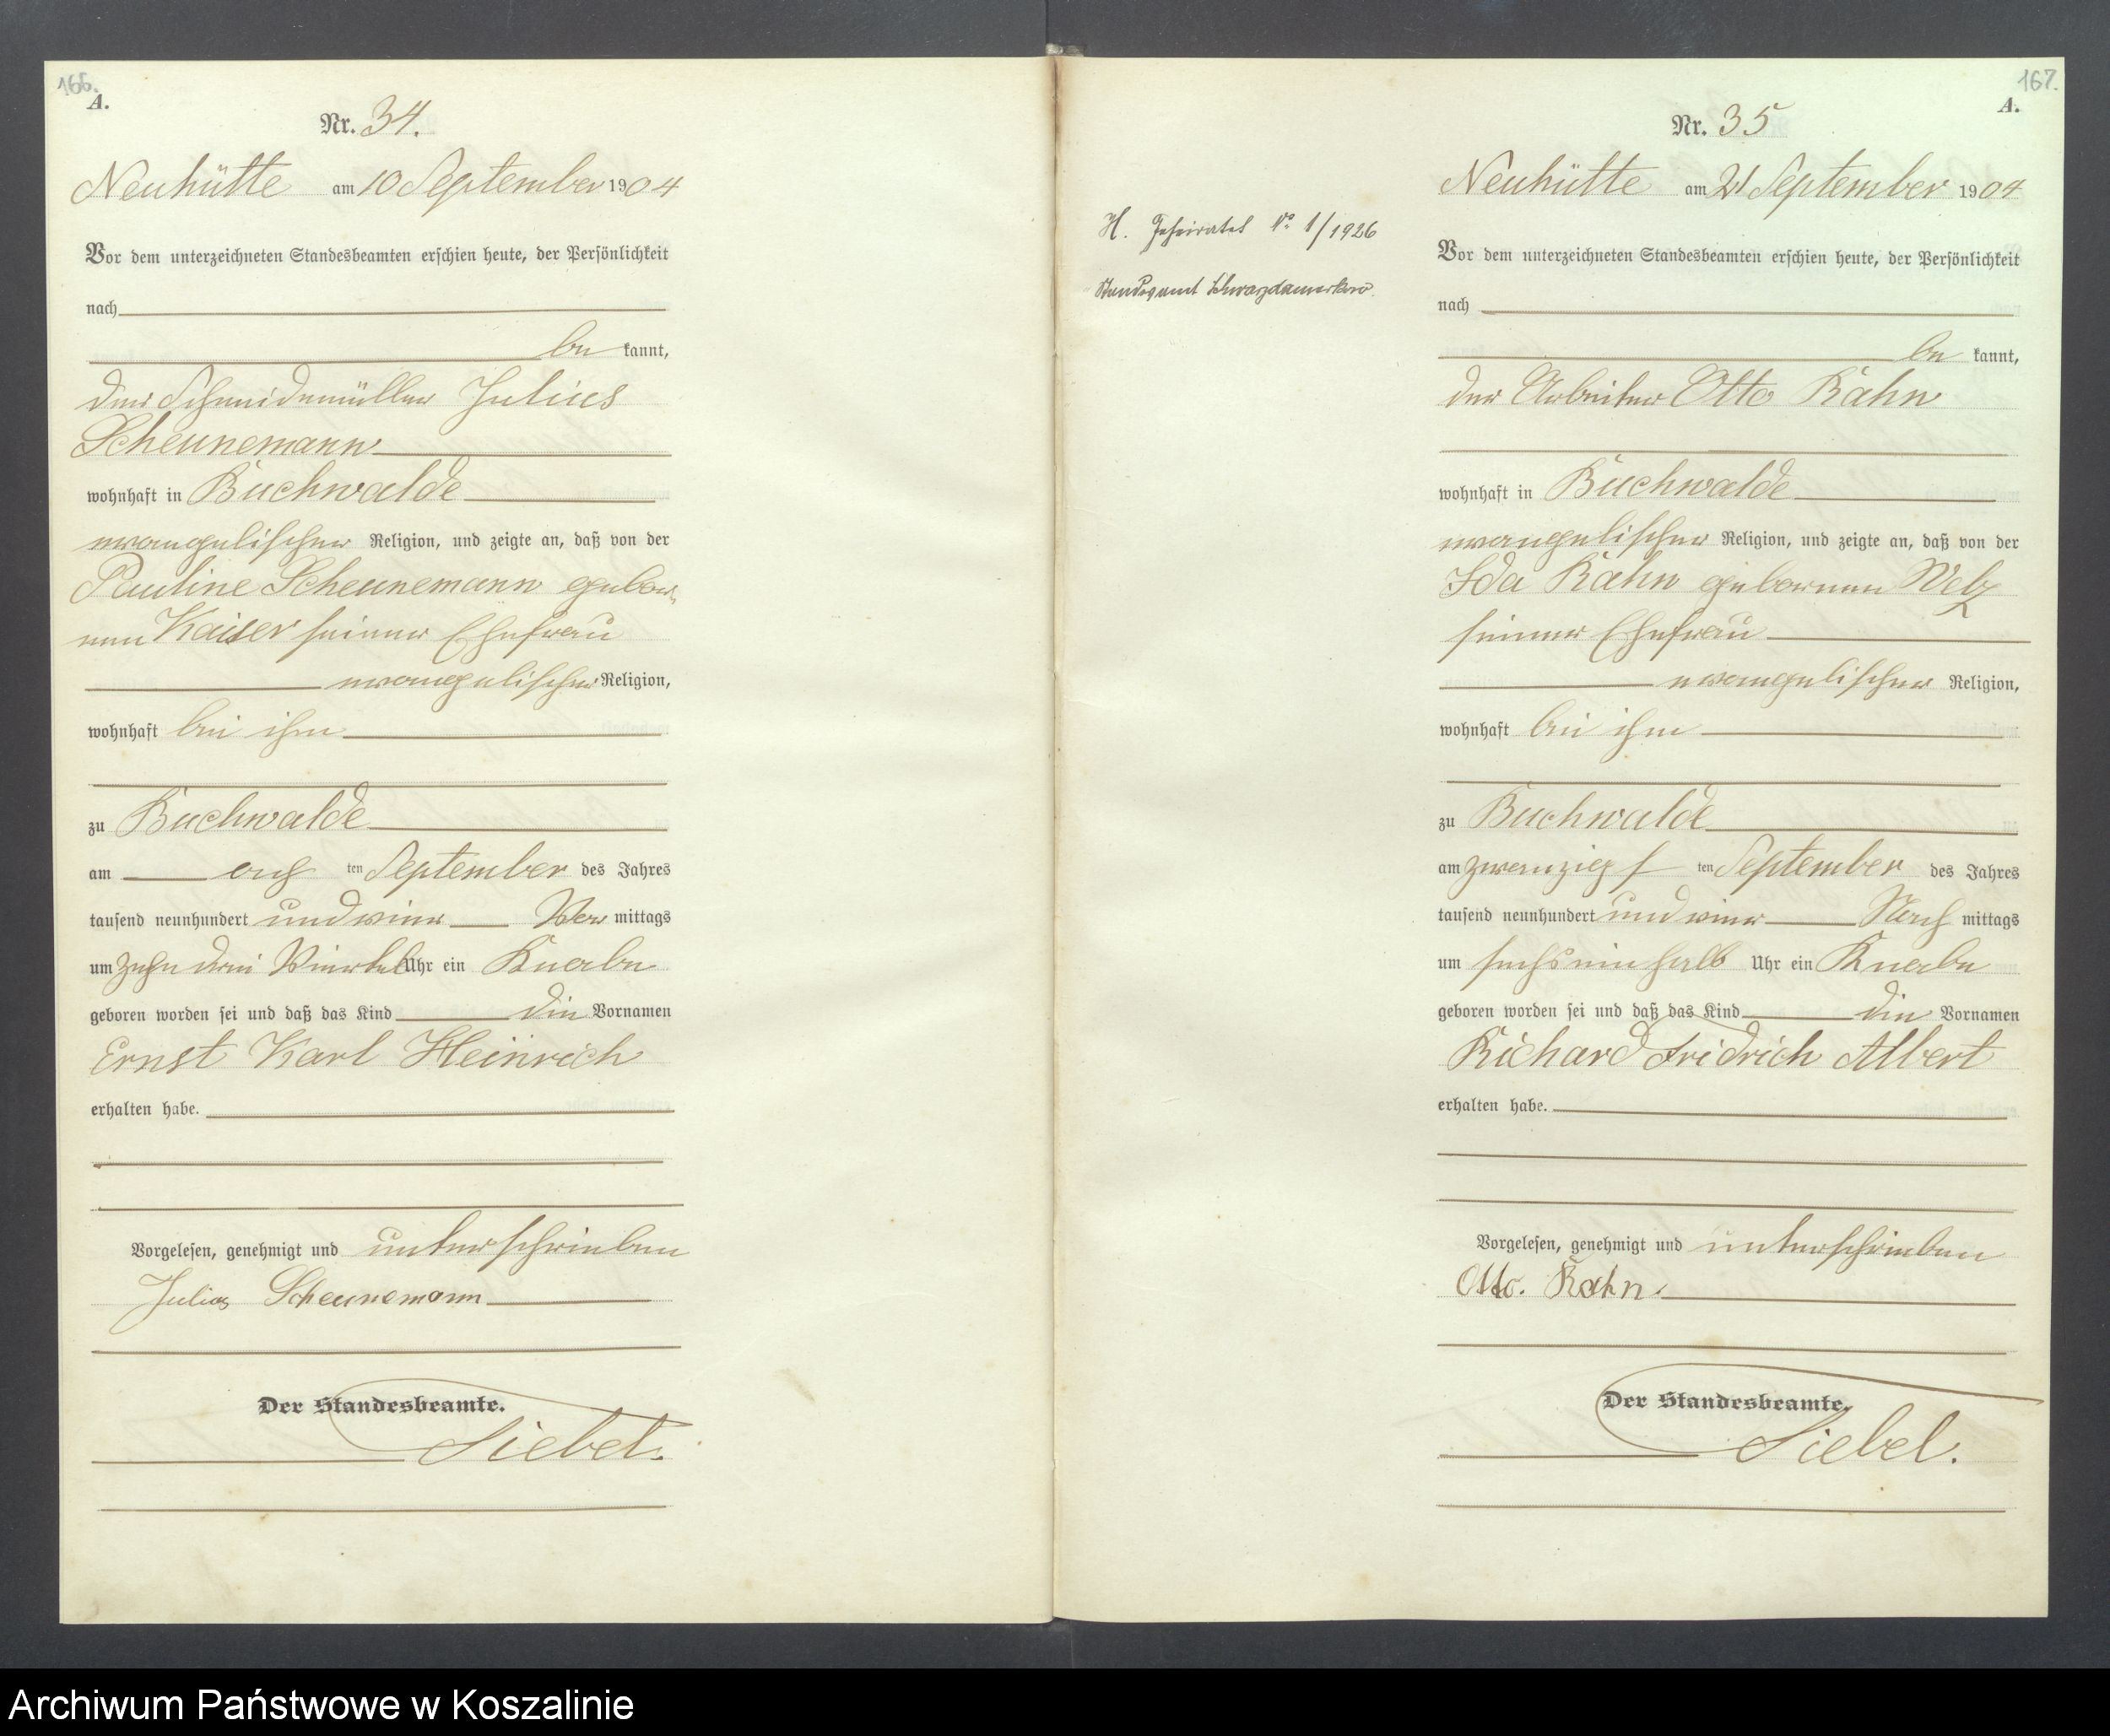 166.
A.
Nr. 34.
Neuhütte am 10 September 1904
Vor dem unterzeichneten Standesbeamten erschien heute, der Persönlichkeit
nach
be kannt,
der Schneidemüller Julius
Scheunemann
wohnhaft in Buchwalde
evangelischer Religion, und zeigte an, daß von der
Pauline Scheunemann gebor-
nen Kaiser seiner Ehefrau
evangelischer Religion,
wohnhaft bei ihm
zu Buchwalde
am ach ten September des Jahres
tausend neunhundert und vier Vor mittags
um zehn drei Viertel Uhr ein Knabe
geboren worden sei und daß das Kind die Vornamen
Ernst Karl Heinrich
erhalten habe.
Vorgelesen, genehmigt und unterschrieben
Julius Scheunemann
Der Standesbeamte.
Siebel.
167.
A.
Nr. 35
Neuhütte am 21 September 1904
H. Geheiratet No 1/1926
Standesamt Schwarzdamerkow
Vor dem unterzeichneten Standesbeamten erschien heute, der Persönlichkeit
nach
be kannt,
der Arbeiter Otto Rahn
wohnhaft in Buchwalde
evangelischer Religion, und zeigte an, daß von der
Ida Rahn gebornen Welz
seiner Ehefrau
evangelischer Religion,
wohnhaft bei ihm
zu Buchwalde
am zwanzigs ten September des Jahres
tausend neunhundert und vier Nach mittags
um sechs ein halb Uhr ein Knabe
geboren worden sei und daß das Kind die Vornamen
Richard Fridrich Albert
erhalten habe.
Vorgelesen, genehmigt und unterschrieben
Otto. Rahn.
Der Standesbeamte.
Siebel.
Archiwum Państwowe w Koszalinie